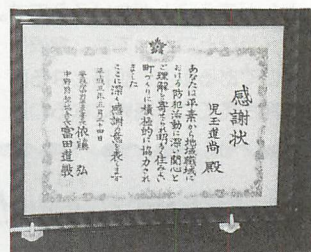 感謝状
児玉道尚 殿
あなたは平素から地域職域に
おける防犯活動に深い関心と
ご理解を寄せられ明るく住みよい
町づくりに積極的に協力され
ました
ここに深く感謝の意を表します
平成三年三月二十四日
弘
富田道敏